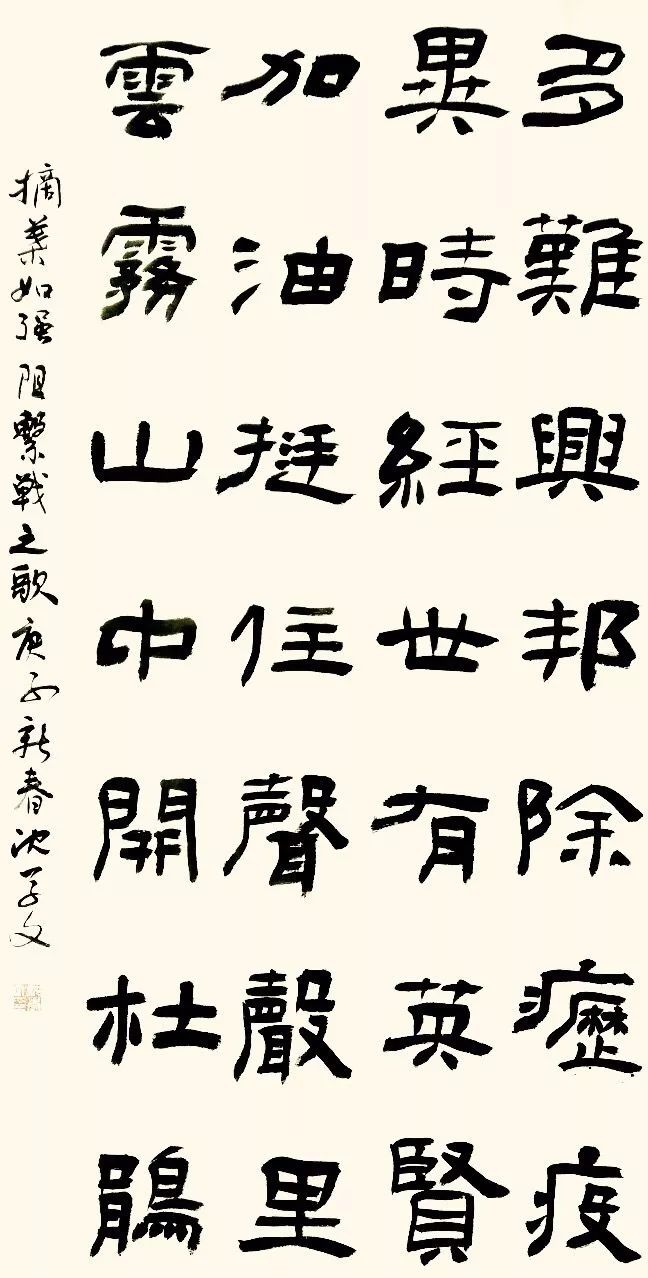 多難興邦除癧疫
異時經世有英賢
加油挺住聲聲里
雲霧山中開杜鵑
摘葉如强阻擊戰之歌庚子新春沈學文